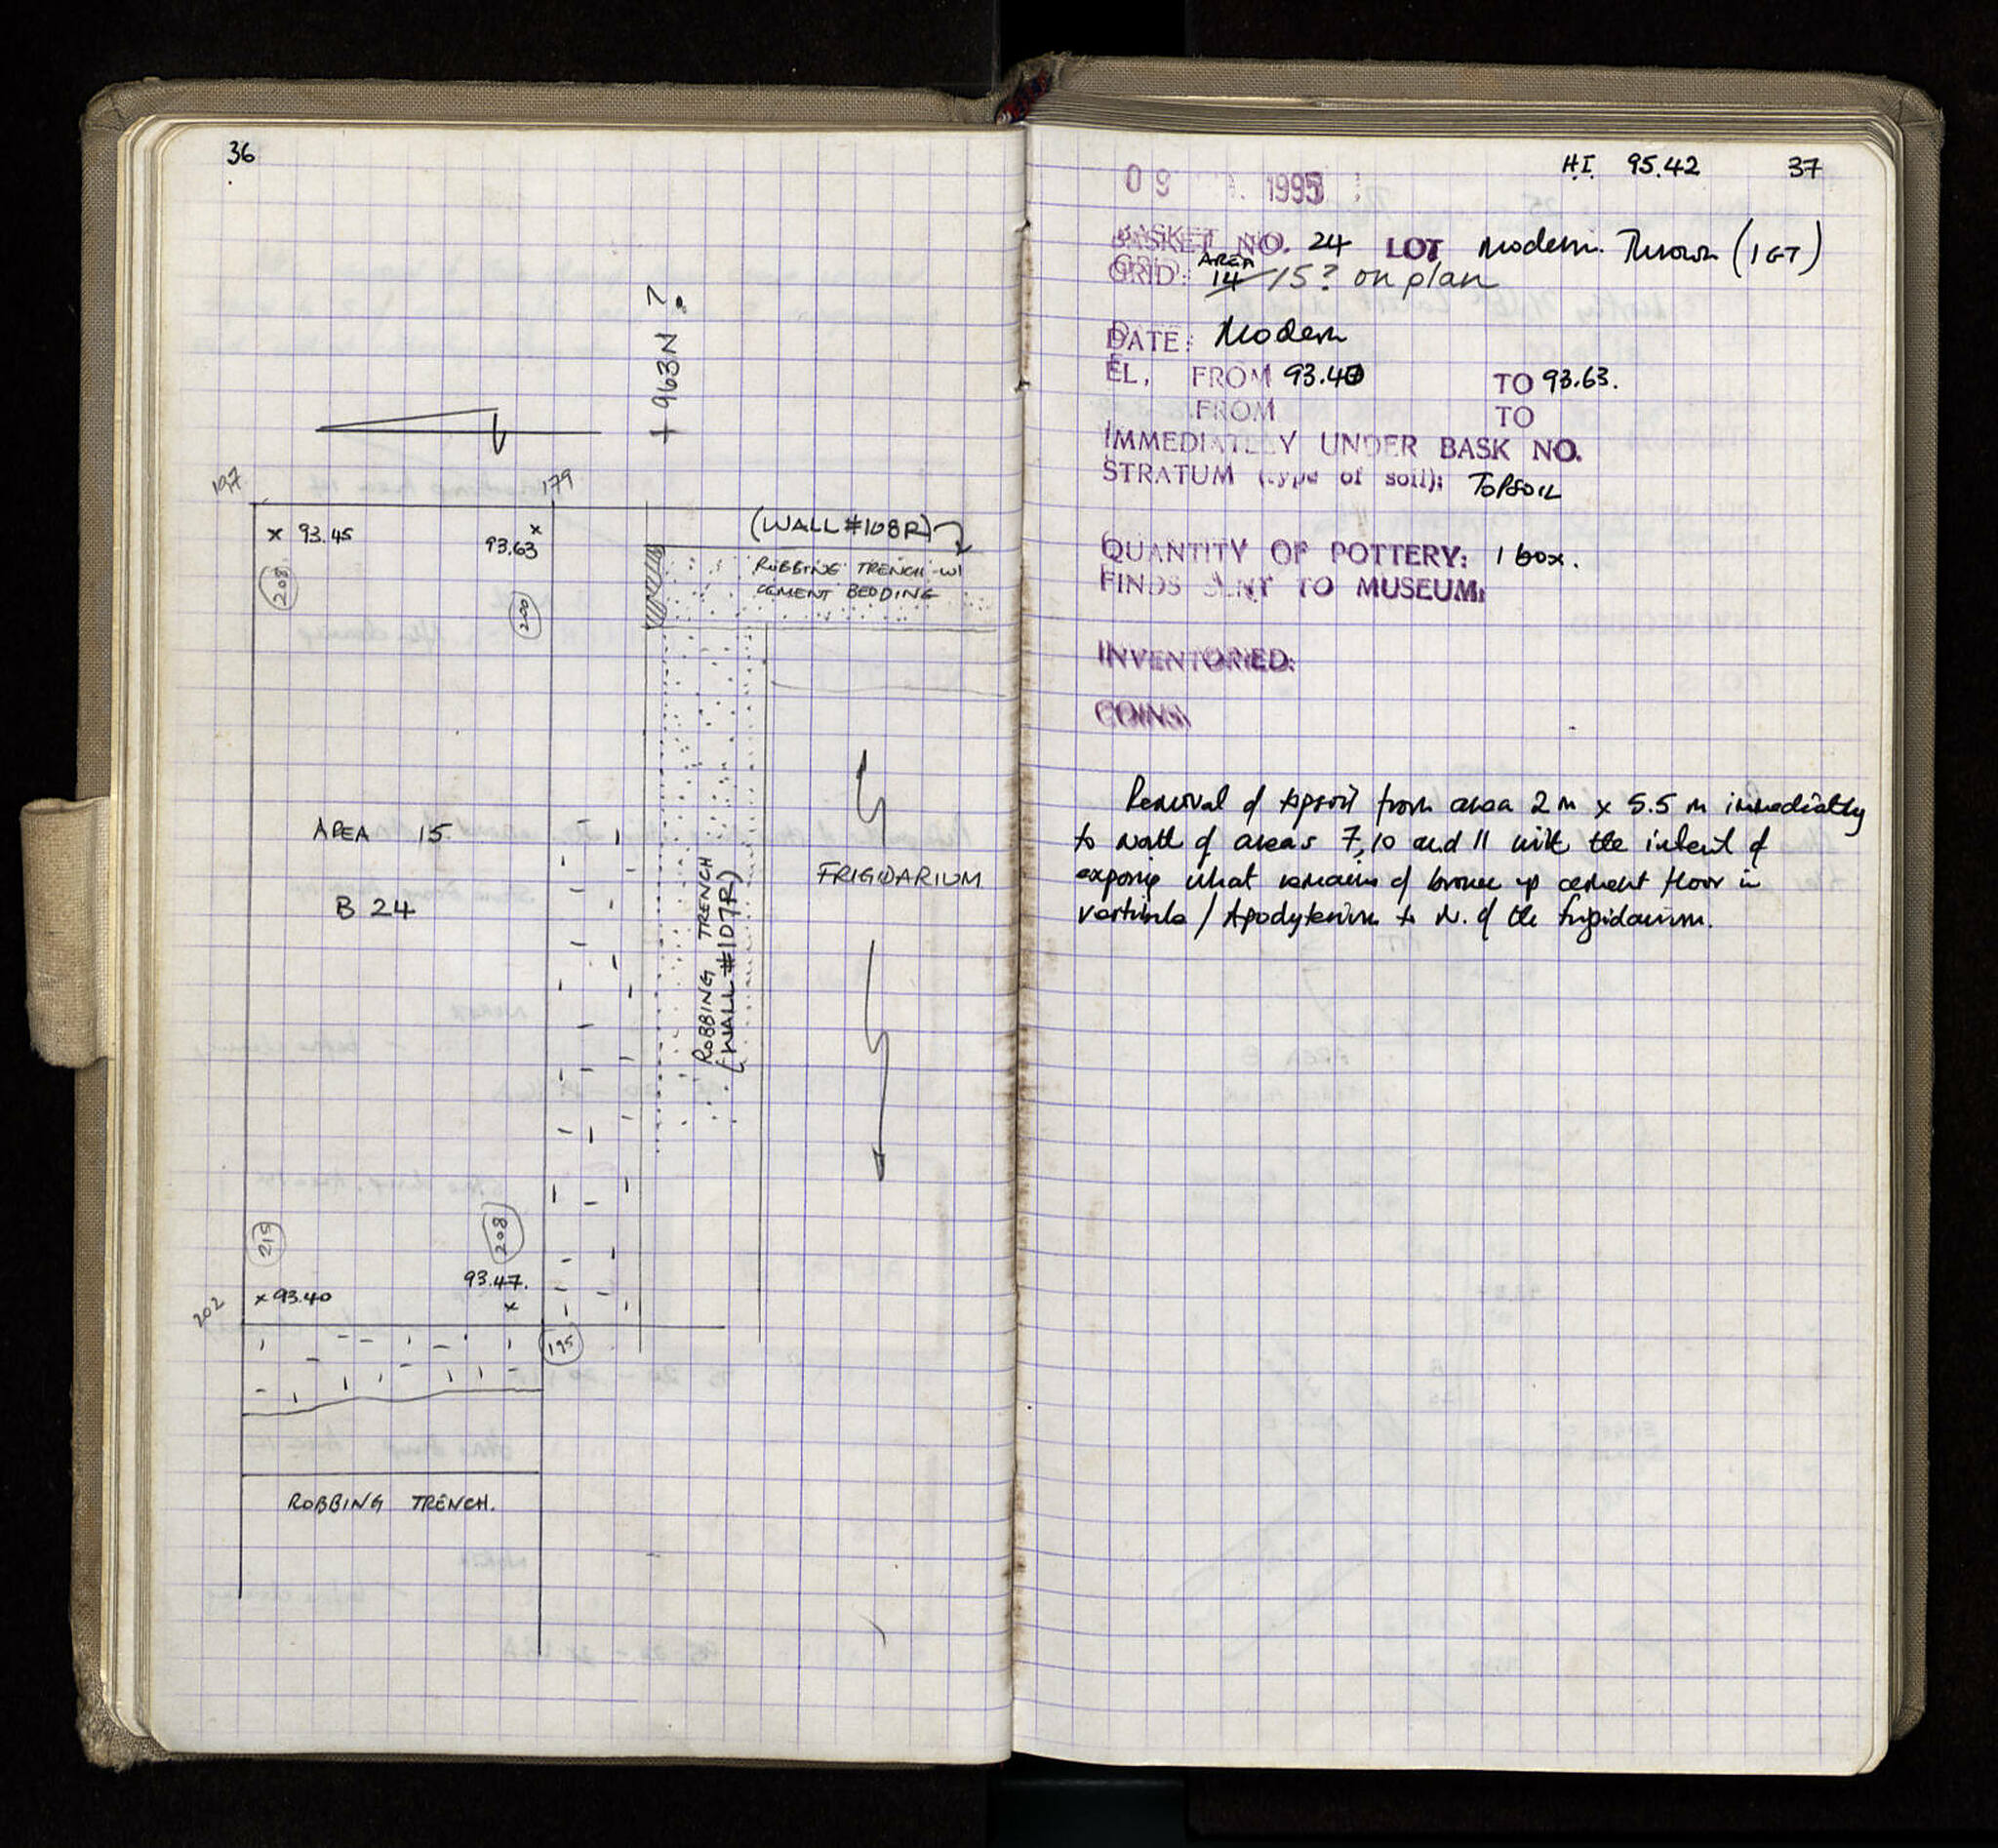 36
+ 963N ?
197
179
x 93.45
x
93.63
208
200
(WALL #108R)
ROBBING TRENCH W/
CEMENT BEDDING
AREA 15
B 24
ROBBING TRENCH
(WALL #107R)
FRIGIDARIUM
219
208
93.47.
x
x 93.40
202
195
ROBBING TRENCH.
H.I. 95.42 37
09 1995
BASKET NO. 24 LOT Modern. Thrown (1GT)
AREA
GRID: 14 /15? on plan
DATE: Modern
EL. FROM 93.40 TO 93.63.
FROM TO
IMMEDIATELY UNDER BASK NO.
STRATUM (type of soil): TOPSOIL
QUANTITY OF POTTERY: 1 box.
FINDS SENT TO MUSEUM:
INVENTORIED:
COINS:
Removal of topsoil from area 2 m x 5.5 m immediately
to north of areas 7, 10 and 11 with the intent of
exposing what remains of broken up cement floor in
vestibule / Apodyterium to N. of the frigidarium.